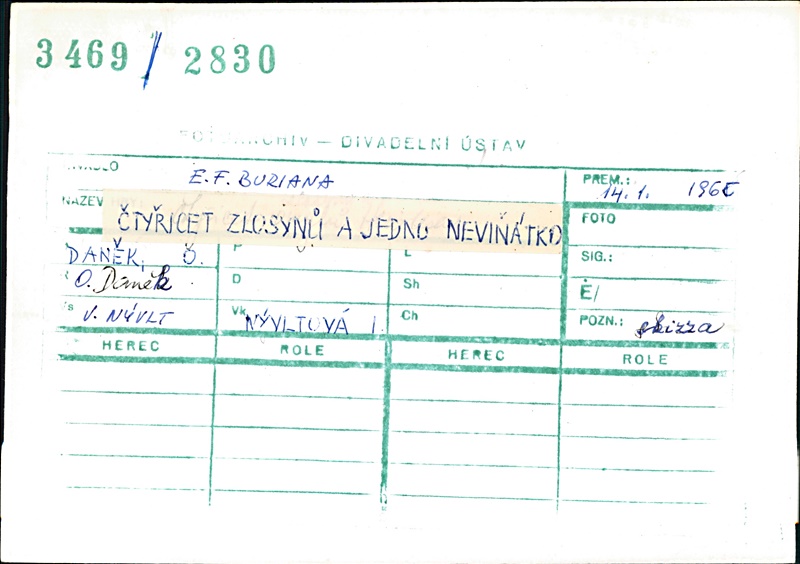 3469/2830
— DIVADELNÍ ÚSTAV
E.F. BURIANA
PREM.: 14.1. 196
NÁZEV
ČTYŘICET ZLOSYNŮ A JEDNO NEVIŇÁTKO
FOTO
DANĚK, O.
P
L
SIG.:
O. Daněk
D
Sh
Ě/
V. NÝVLT
Vk NÝVLTOVÁ I.
Ch
POZN.: skizza
HEREC ROLE HEREC ROLE